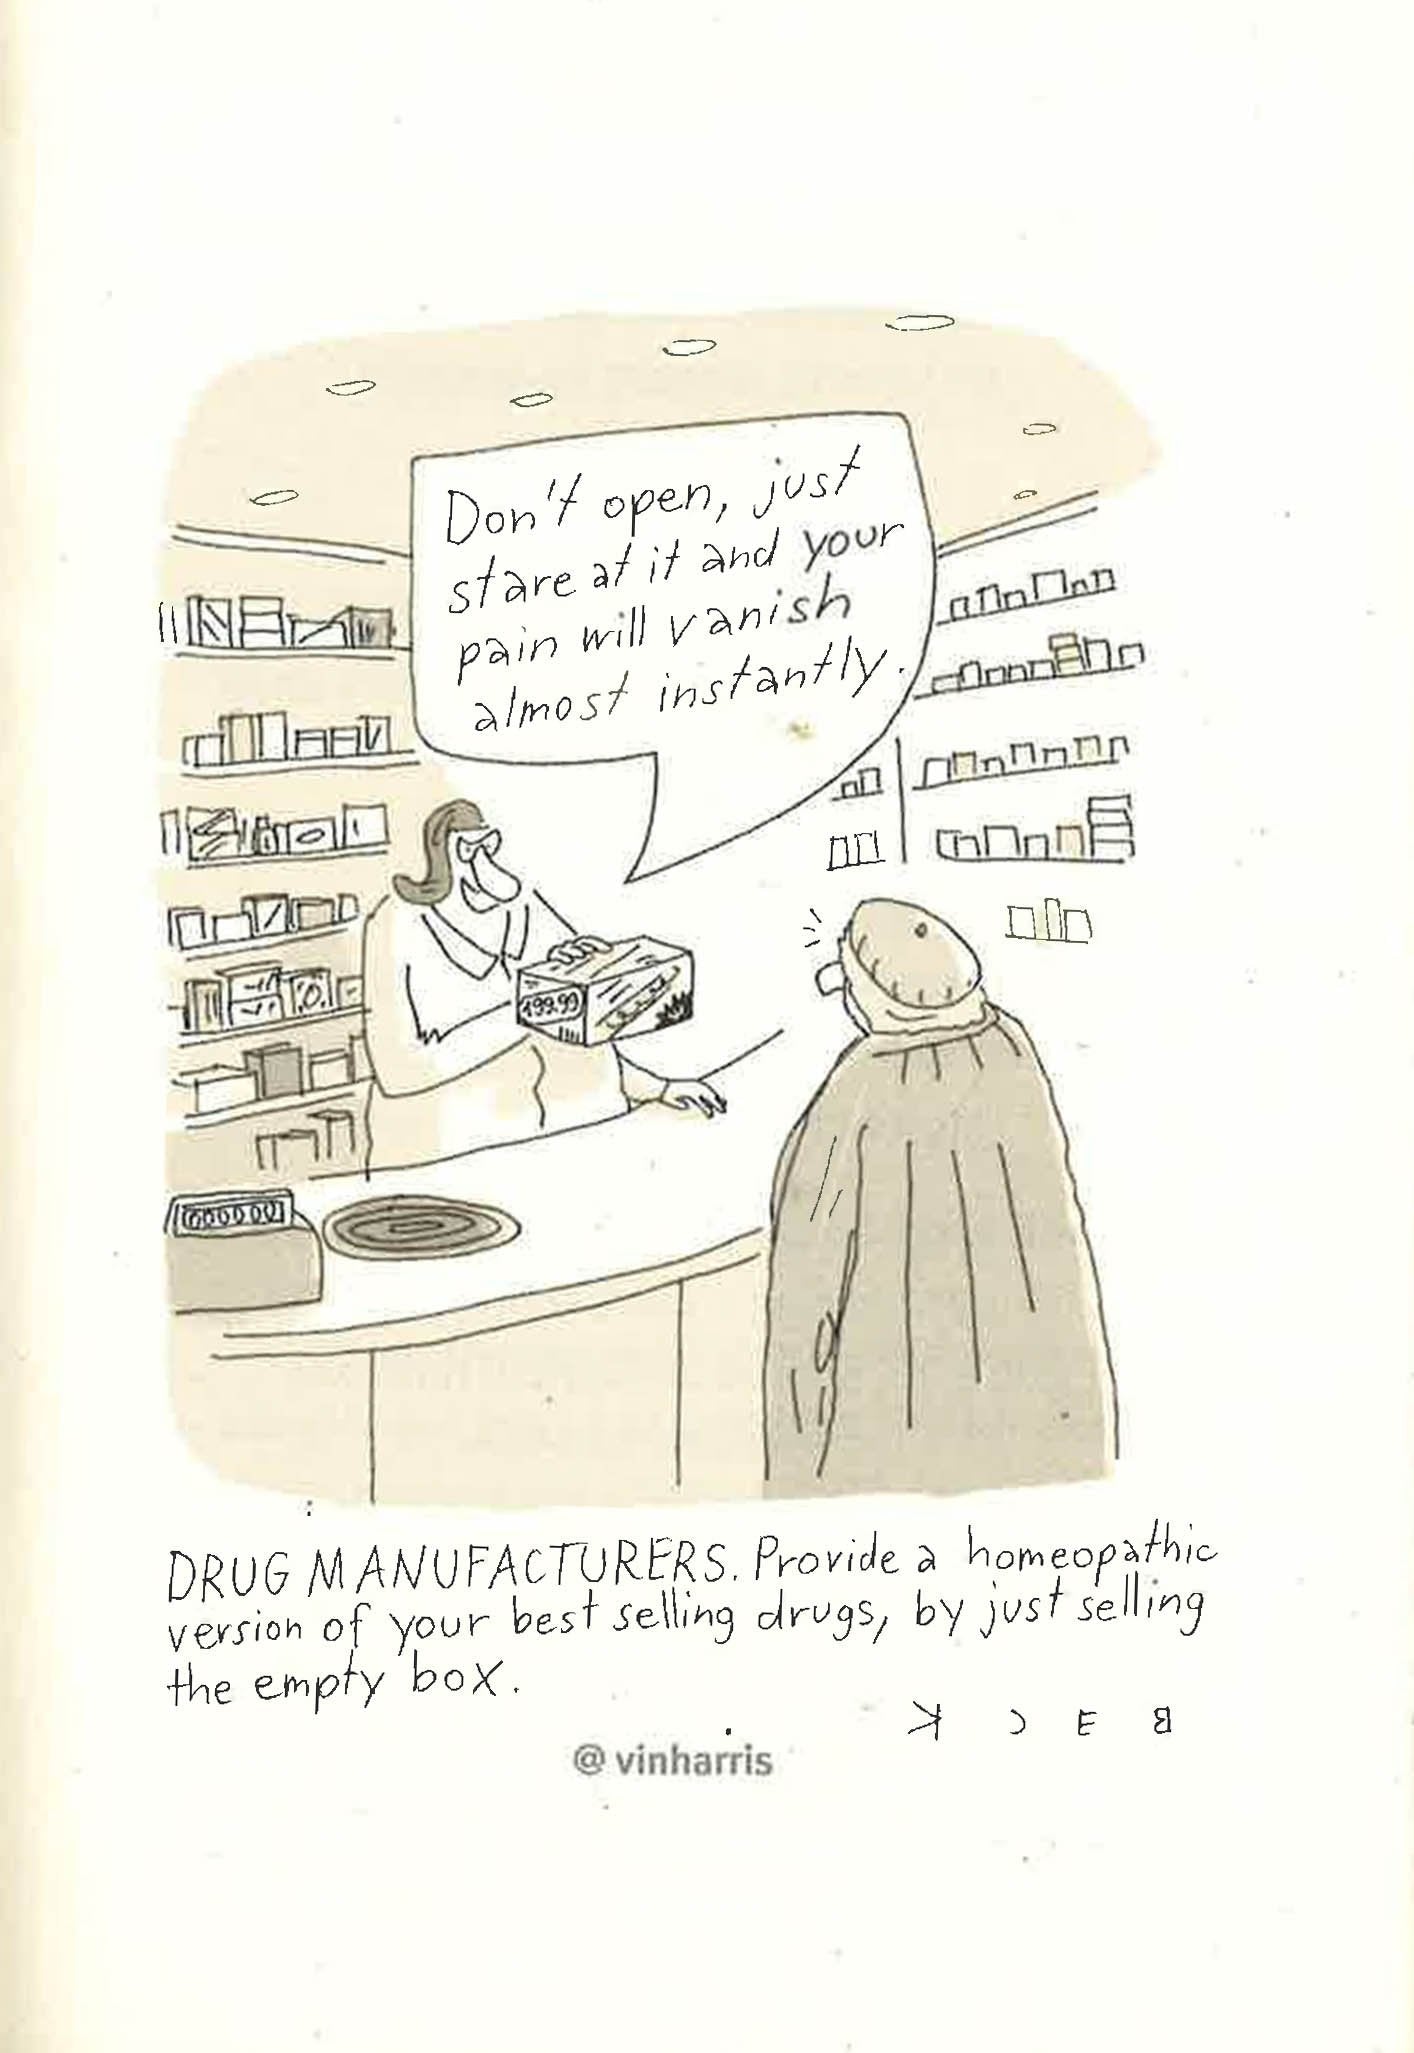 Don't open, just
stare at it and your
pain will vanish
almost instantly.
199.99
DRUG MANUFACTURERS. Provide a homeopathic
version of your best selling drugs, by just selling
the empty box.
BECK
@ vinharris